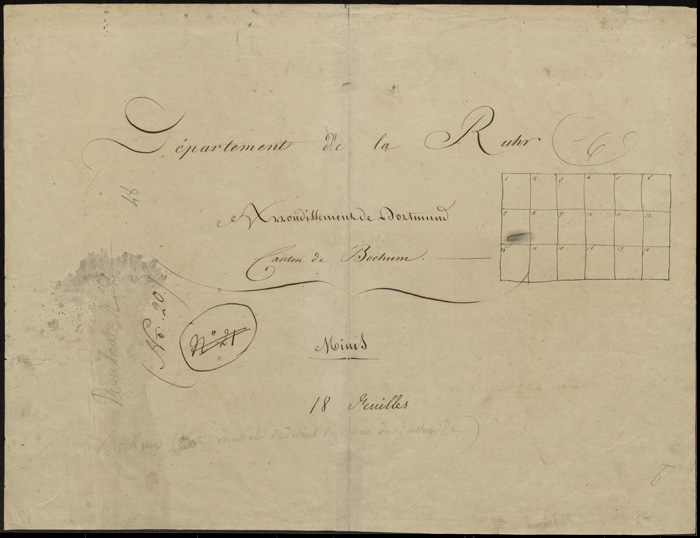 Département de la Ruhr
Arrondissement de Dortmund
Canton de Bochum.
Mines
18 Feuilles
1 2 3 4 5 6
7 8 9 10 11 12
13 14 15 16 17 18
48
No. 20.
No 21